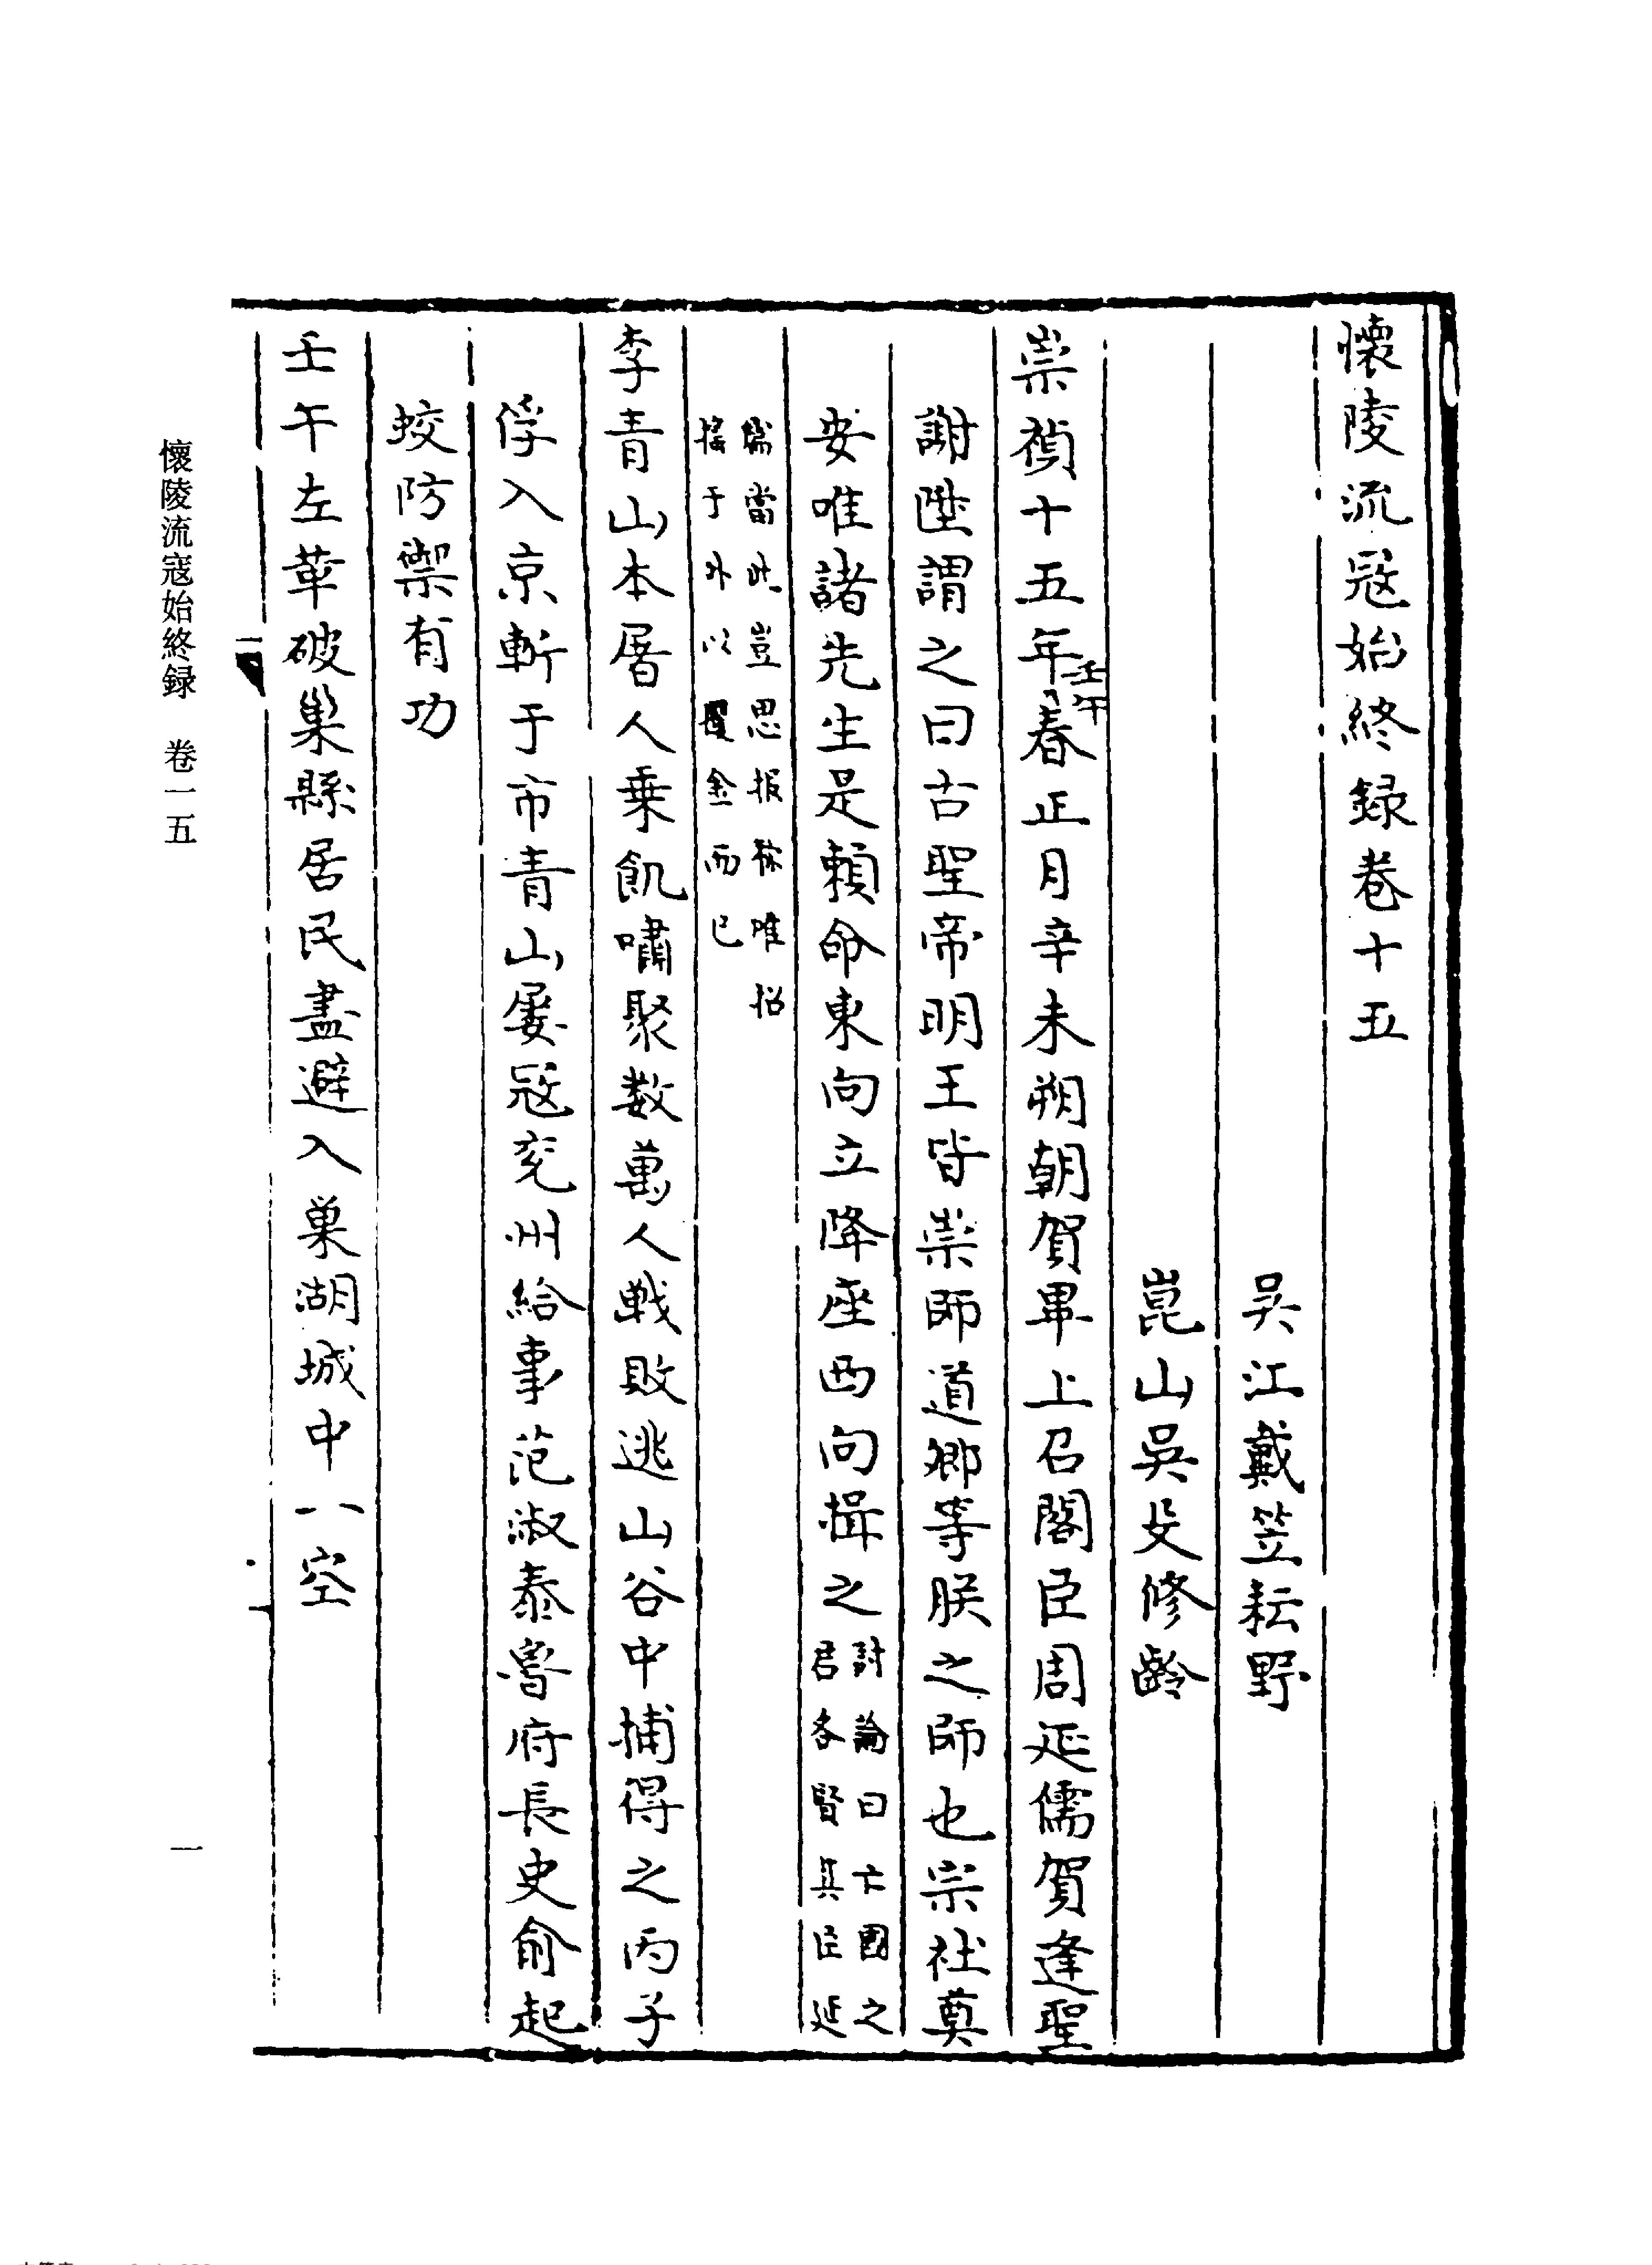 懷陵流寇始終録卷十五
吳江戴笠耘野
崑山吳殳修齡
崇禎十五年壬午春正月辛未朔朝賀畢上召閣臣周延儒賀逢聖
謝陞謂之曰古聖帝明王皆崇師道卿等朕之師也宗社奠
安唯諸先生是賴命東向立降座西向揖之討論曰亡國之
君各賢其臣延
儒當此豈思報稱唯招
搖于外以攫金而已
李青山本屠人乗飢嘯聚数萬人戰敗逃山谷中捕得之丙子
俘入京斬于市青山屢寇兖州給事范淑泰魯府長史俞起
蛟防禦有功
壬午左革破巢縣居民盡避入巢湖城中一空
懷陵流寇始終録 卷一五
一